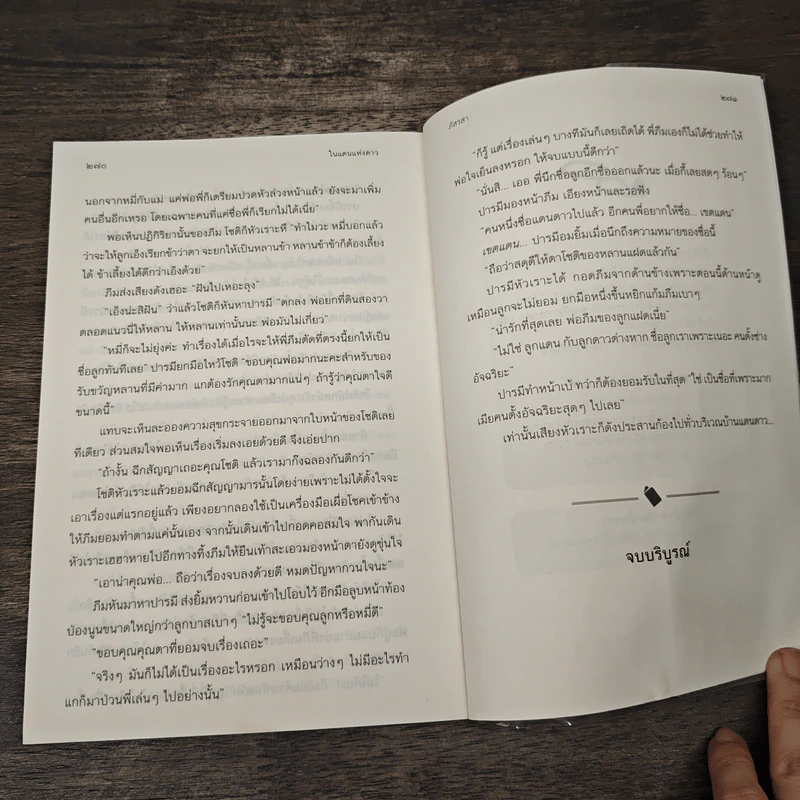 ๒๗๐
ในแดนแห่งดาว
นอกจากหมี่กับแม่ แค่พ่อพี่ก็เตรียมปวดหัวล่วงหน้าแล้ว ยังจะมาเพิ่ม
คนอื่นอีกเหรอ โดยเฉพาะคนที่แค่ชื่อพี่ก็เรียกไม่ได้เนี่ย”
พอเห็นปฏิกิริยานั้นของภีม โชติก็หัวเราะหึ “ทำไมวะ หมี่บอกแล้ว
ว่าจะให้ลูกเอ็งเรียกข้าว่าตา จะยกให้เป็นหลานข้า หลานข้าข้าก็ต้องเลี้ยง
ได้ ข้าเลี้ยงได้ดีกว่าเอ็งด้วย”
ภีมส่งเสียงดังเฮอะ “ฝันไปเหอะลุง”
“เอ็งน่ะสิฝัน” ว่าแล้วโชติก็หันหาปารมี “ตกลง พ่อยกที่ดินสองวา
ตลอดแนวนี่ให้หลาน ให้หลานเท่านั้นนะ พ่อมันไม่เกี่ยว”
“หมี่ก็จะไม่ยุ่งค่ะ ทำเรื่องได้เมื่อไรจะให้พี่ภีมตัดที่ตรงนี้ยกให้เป็น
ชื่อลูกทันทีเลย” ปารมียกมือไหว้โชติ “ขอบคุณพ่อมากนะคะสำหรับของ
รับขวัญหลานที่มีค่ามาก แกต้องรักคุณตามากแน่ๆ ถ้ารู้ว่าคุณตาใจดี
ขนาดนี้”
แทบจะเห็นละอองความสุขกระจายออกมาจากใบหน้าของโชติเลย
ทีเดียว ส่วนสมใจพอเห็นเรื่องเริ่มลงเอยด้วยดี จึงเอ่ยปาก
“ถ้างั้น ฉีกสัญญาเถอะคุณโชติ แล้วเรามาก๊งฉลองกันดีกว่า”
โชติหัวเราะแล้วยอมฉีกสัญญามารนั้นโดยง่ายเพราะไม่ได้ตั้งใจจะ
เอาเรื่องแต่แรกอยู่แล้ว เพียงอยากลองใช้เป็นเครื่องมือเผื่อโชคเข้าข้าง
ให้ภีมยอมทำตามแค่นั้นเอง จากนั้นเดินเข้าไปกอดคอสมใจ พากันเดิน
หัวเราะเฮฮาหายไปอีกทางทิ้งภีมให้ยืนเท้าสะเอวมองหน้าตายังดูขุ่นใจ
“เอาน่าคุณพ่อ... ถือว่าเรื่องจบลงด้วยดี หมดปัญหากวนใจนะ”
ภีมหันมาหาปารมี ส่งยิ้มหวานก่อนเข้าไปโอบไว้ อีกมือลูบหน้าท้อง
ป่องนูนขนาดใหญ่กว่าลูกบาสเบาๆ “ไม่รู้จะขอบคุณลูกหรือหมี่ดี”
“ขอบคุณคุณตาที่ยอมจบเรื่องเถอะ”
“จริงๆ มันก็ไม่ได้เป็นเรื่องอะไรหรอก เหมือนว่างๆ ไม่มีอะไรทำ
แกก็มาป่วนพี่เล่นๆ ไปอย่างนั้น”
ภัสรสา
๒๗๑
“ก็รู้ แต่เรื่องเล่นๆ บางทีมันก็เลยเถิดได้ พี่ภีมเองก็ไม่ได้ช่วยทำให้
พ่อใจเย็นลงหรอก ให้จบแบบนี้ดีกว่า”
“นั่นสิ... เออ พี่นึกชื่อลูกอีกชื่อออกแล้วนะ เมื่อกี้เลยสดๆ ร้อนๆ”
ปารมีมองหน้าภีม เอียงหน้าและรอฟัง
“คนหนึ่งชื่อแดนดาวไปแล้ว อีกคนพี่อยากให้ชื่อ... เขตแดน”
เขตแดน... ปารมีอมยิ้มเมื่อนึกถึงความหมายของชื่อนี้
“ถือว่าสดุดีให้ตาโชติของหลานแฝดแล้วกัน”
ปารมีหัวเราะได้ กอดภีมจากด้านข้างเพราะตอนนี้ด้านหน้าดู
เหมือนลูกจะไม่ยอม ยกมือหนึ่งขึ้นหยิกแก้มภีมเบาๆ
“น่ารักที่สุดเลย พ่อภีมของลูกแฝดเนี่ย”
“ไม่ใช่ ลูกแดน กับลูกดาวต่างหาก ชื่อลูกเราเพราะเนอะ คนตั้งช่าง
อัจฉริยะ”
ปารมีทำหน้าเบ้ ทว่าก็ต้องยอมรับในที่สุด “ใช่ เป็นชื่อที่เพราะมาก
เมียคนตั้งอัจฉริยะสุดๆ ไปเลย”
เท่านั้นเสียงหัวเราะก็ดังประสานก้องไปทั่วบริเวณบ้านแดนดาว...
จบบริบูรณ์